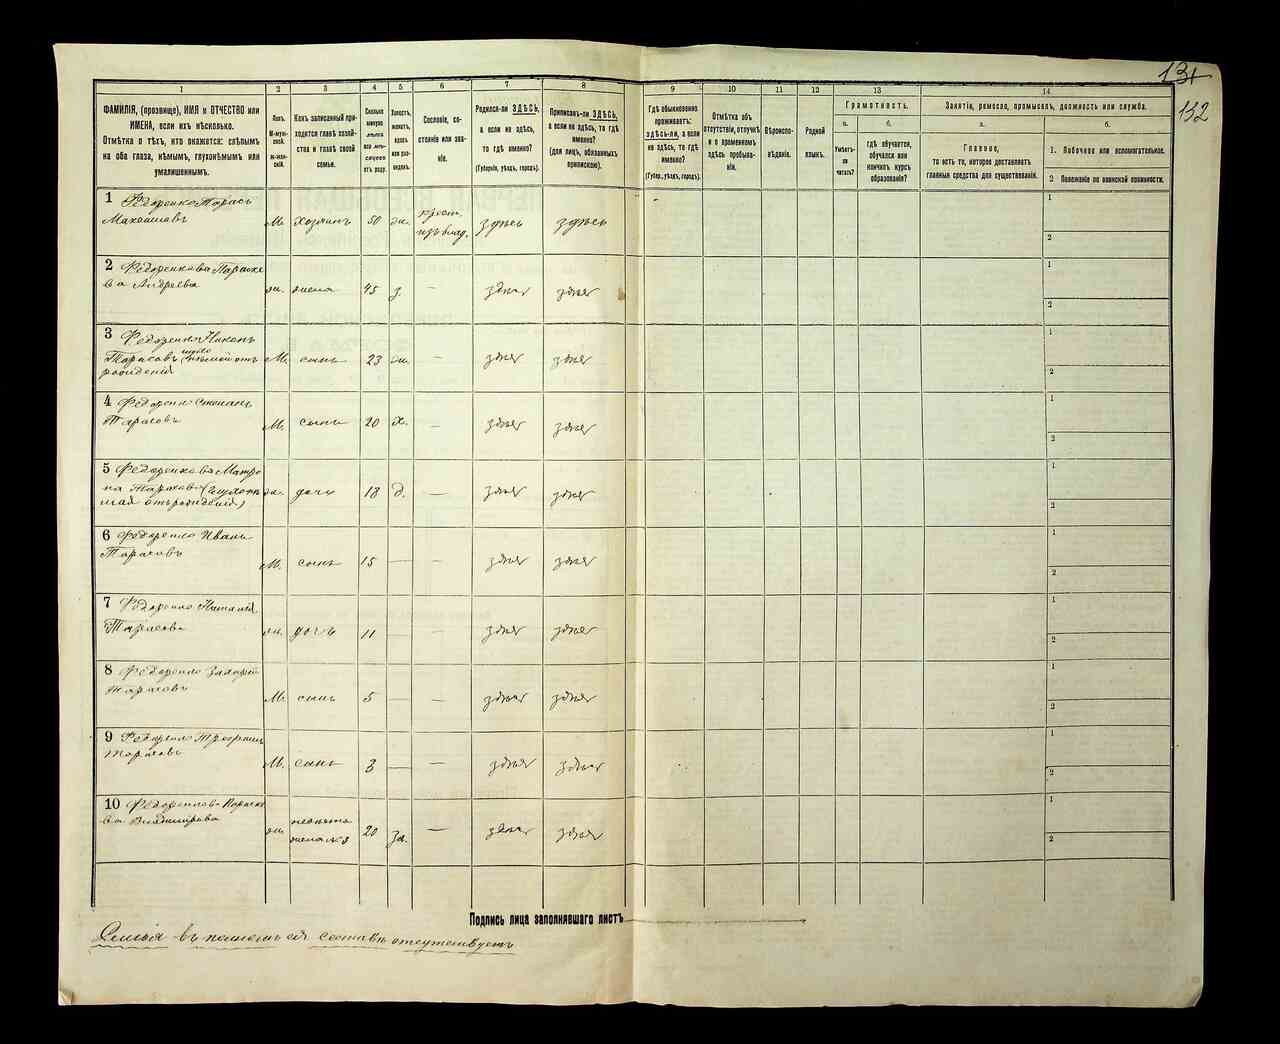 131
132
1
2
3
4
5
6
7
8
9
10
11
12
13
14
ФАМИЛІЯ, (прозвище), ИМЯ и ОТЧЕСТВО или
ИМЕНА, если ихъ нѣсколько.
Отмѣтка о тѣхъ, кто окажется: слѣпымъ
на оба глаза, нѣмымъ, глухонѣмымъ или
умалишеннымъ.
Полъ.
М-муж-
ской.
Ж-жен-
скій.
Какъ записанный при-
ходится главѣ хозяй-
ства и главѣ своей
семьи.
Сколько
минуло
лѣтъ
или мѣ-
сяцевъ
отъ роду.
Холостъ,
женатъ,
вдовъ
или раз-
веденъ.
Сословіе, со-
стояніе или зва-
ніе.
Родился-ли ЗДѢСЬ,
а если не здѣсь,
то гдѣ именно?
(Губернія, уѣздъ, городъ).
Приписанъ-ли ЗДѢСЬ,
а если не здѣсь, то гдѣ
именно?
(для лицъ, обязанныхъ
припискою).
Гдѣ обыкновенно
проживаетъ:
здѣсь-ли, а если
не здѣсь, то гдѣ
именно?
(Губер., уѣздъ, городъ).
Отмѣтка объ
отсутствіи, отлучкѣ
и о временномъ
здѣсь пребыва-
ніи.
Вѣроиспо-
вѣданіе.
Родной
языкъ.
Грамотность.
а.
б.
Умѣетъ-
ли
читать?
гдѣ обучается,
обучался или
кончилъ курсъ
образованія?
Занятіе, ремесло, промыселъ, должность или служба.
а.
б.
Главное,
то есть то, которое доставляетъ
главныя средства для существованія.
1. Побочное или вспомогательное.
2 Положеніе по воинской повинности.
1 Федоренко Тарасъ
М. хозяинъ 50 жн. крест. здѣсь здѣсь
изъ влад.
2 Федоренкова Параске
ва Андреева
жн. жена 45 з. — здѣсь здѣсь
3 Федоренко Никонъ
Тарасовъ нѣмой отъ
рожденія
М. сынъ 23 жн. — здѣсь здѣсь
4 Федоренко Степанъ
Тарасовъ
М. сынъ 20 х. — здѣсь здѣсь
5 Федоренкова Матре
на Тарасова (глухонѣ
мая отъ рожденія)
жн. дочь 18 д. — здѣсь здѣсь
6 Федоренко Иванъ
Тарасовъ
М. сынъ 15 — — здѣсь здѣсь
7 Федоренко Наталія
Тарасова
жн. дочь 11 — — здѣсь здѣсь
8 Федоренко Захарій
Тарасовъ
М. сынъ 5 — — здѣсь здѣсь
9 Федоренко
Тарасовъ
М. сынъ 3 — — здѣсь здѣсь
10 Федоренкова Параске
ва Владимірова
жн. невѣстка 20 За. — здѣсь здѣсь
Подпись лица заполнявшаго листъ
Семья въ полномъ ея составѣ отсутствуетъ